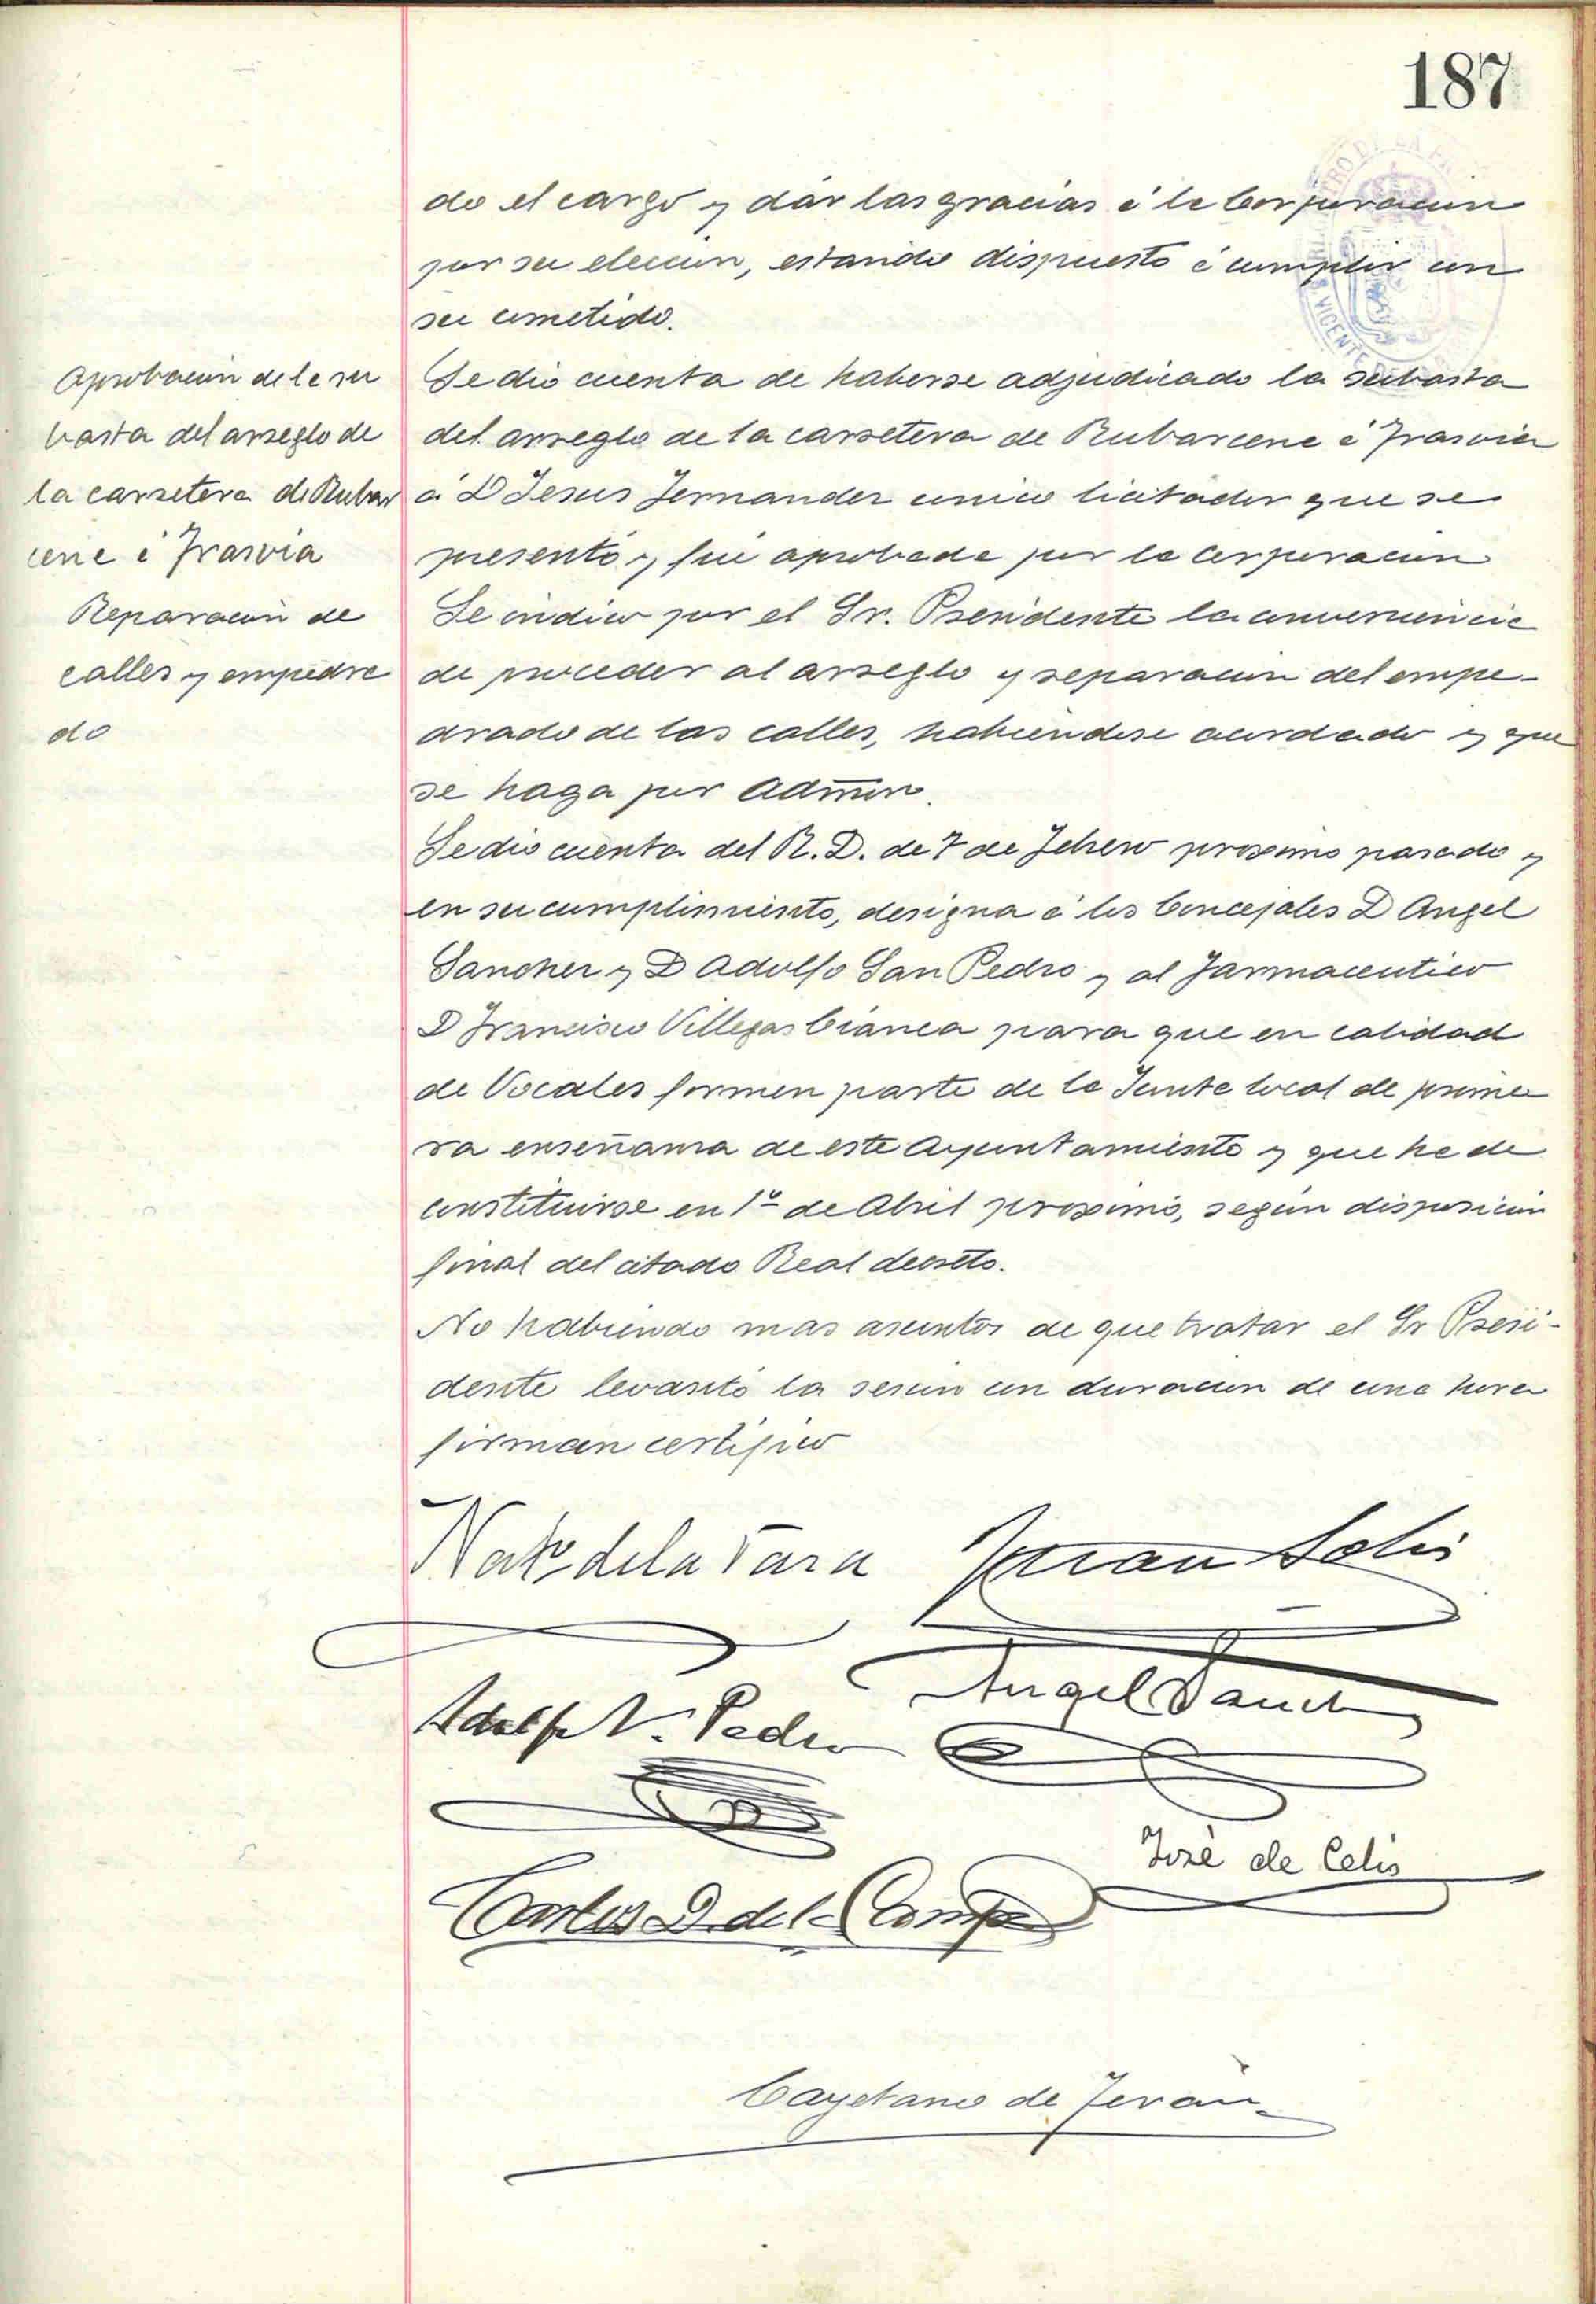 187
do el cargo y dar las gracias á la Corporacion
por su eleccion, estando dispuesto á cumplir con
su cometido.
Aprobacion de la su
basta del arreglo de
la carretera de Rubar
cene á Frasvia
Se dio cuenta de haberse adjudicado la subasta
del arreglo de la carretera de Rubarcene á Frasvia
á D Jesus Fernandez unico licitador que se
presentó y fue aprobada por la Corporacion
Reparacion de
calles y empedra
do
Se indico por el Sr. Presidente la conveniencia
de proceder al arreglo y reparacion del empe-
drado de las calles, habiendose acordado y que
se haga por Admon.
Se dio cuenta del R. D. de 7 de Febrero proximo pasado y
en su cumplimiento, designa á los Concejales D Angel
Sanchez y D Adolfo San Pedro y al Farmaceutico
D Francisco Villegas Cianca para que en calidad
de Vocales formen parte de la Junta local de prime
ra enseñanza de este Ayuntamiento y que ha de
constituirse en 1º de Abril proximo, segun disposicion
final del citado Real decreto.
No habiendo mas asuntos de que tratar el Sr Presi-
dente levantó la sesion con duracion de una hora
firman certifico
de la Vara
Juan Solis
Angel Sanch
Adolfo S. Pedro
José de Celis
Carlos D de la Campa
Cayetano de Teran